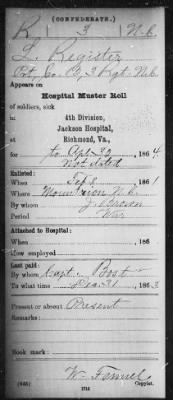 (CONFEDERATE.)
R 3 N.C.
L. Register
Pvt, Co. G, 3 Regt. N.C.
Appears on
Hospital Muster Roll
of soldiers, sick
in
4th Division,
Jackson Hospital,
Richmond, Va.,
for to Apl. 30, 1864
Not dated
Enlisted:
When Feb 8, 186
Where N.C.
By whom J. Brown
Period War
Attached to Hospital:
When, 186
How employed
Last paid:
By whom Capt. Bost
To what time Dec 31, 1863
Present or absent Present
Remarks:
Book mark:
W.
Copyist.